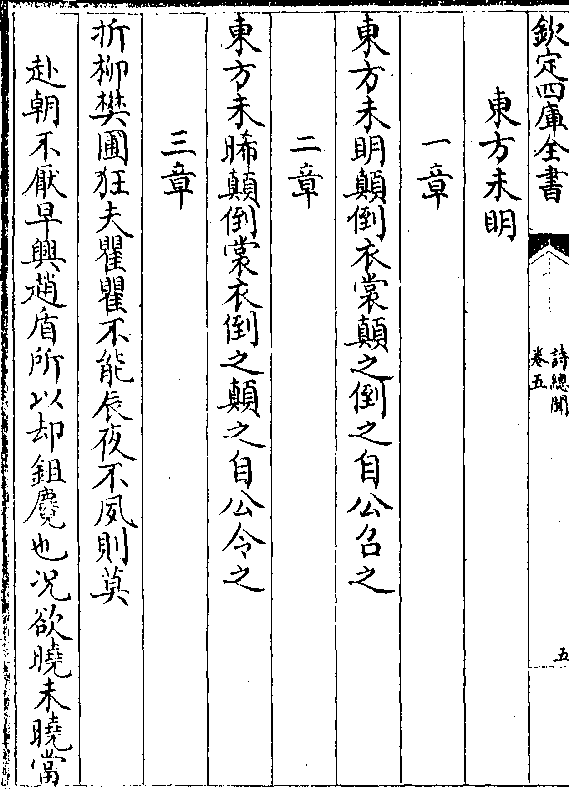 欽定四庫全書
詩總聞
卷五
五
東方未明
一章
東方未明顛倒衣裳顛之倒之自公召之
二章
東方未晞顛倒裳衣倒之顛之自公令之
三章
折柳樊圃狂夫瞿瞿不能辰夜不夙則莫
赴朝不厭早興趙盾所以却鉏麑也况欲曉未曉當